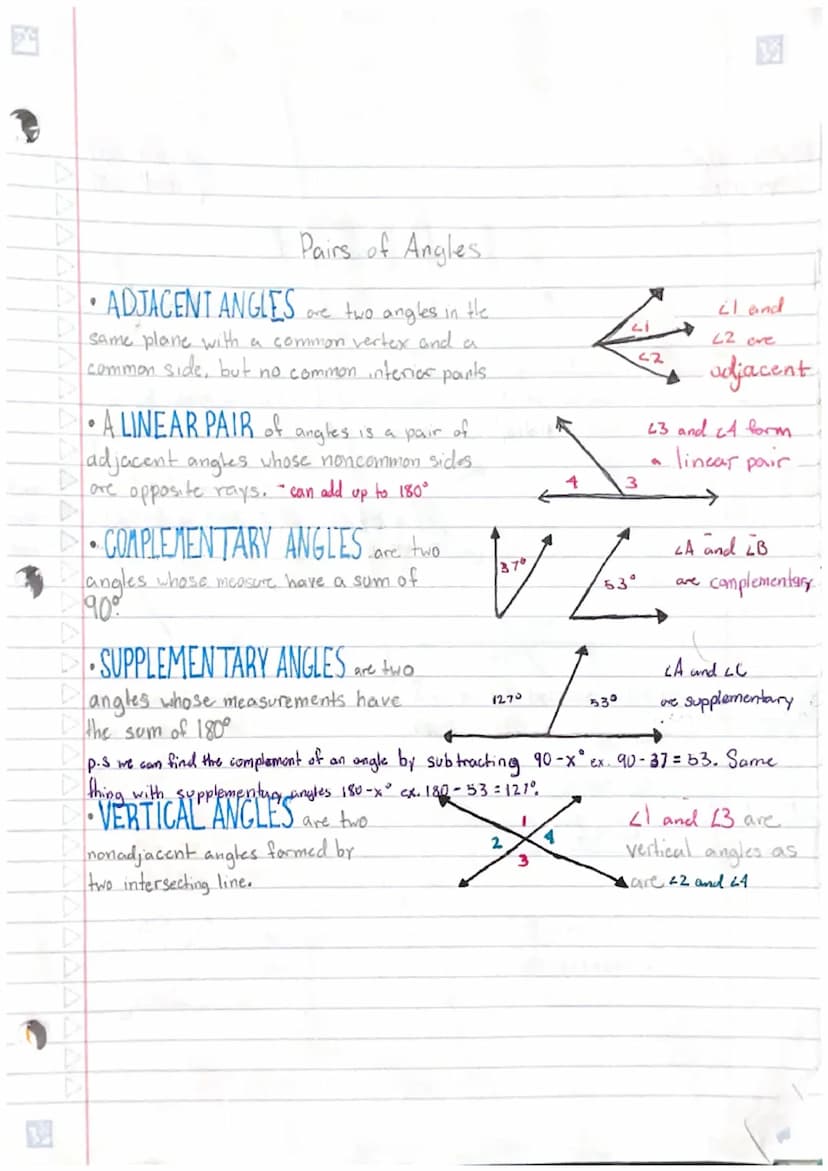 Pairs of Angles
• ADJACENT ANGLES are two angles in the
same plane with a common vertex and a
common side, but no common interior points
∠1
∠2
∠1 and
∠2 are
adjacent
• A LINEAR PAIR of angles is a pair of
adjacent angles whose noncommon sides
are opposite rays. - can add up to 180°
4 3
∠3 and ∠4 form
a linear pair
• COMPLEMENTARY ANGLES are two
angles whose measure have a sum of
90°.
37°
53°
∠A and ∠B
are complementary
• SUPPLEMENTARY ANGLES are two
angles whose measurements have
the sum of 180°
127° 53°
∠A and ∠C
are supplementary
p.s we can find the complement of an angle by subtracting 90-x° ex. 90-37=53. Same
thing with supplementary angles 180-x° ex. 180-53=127°.
• VERTICAL ANGLES are two
nonadjacent angles formed by
two intersecting line.
1
2 4
3
∠1 and ∠3 are
vertical angles as
are ∠2 and ∠4